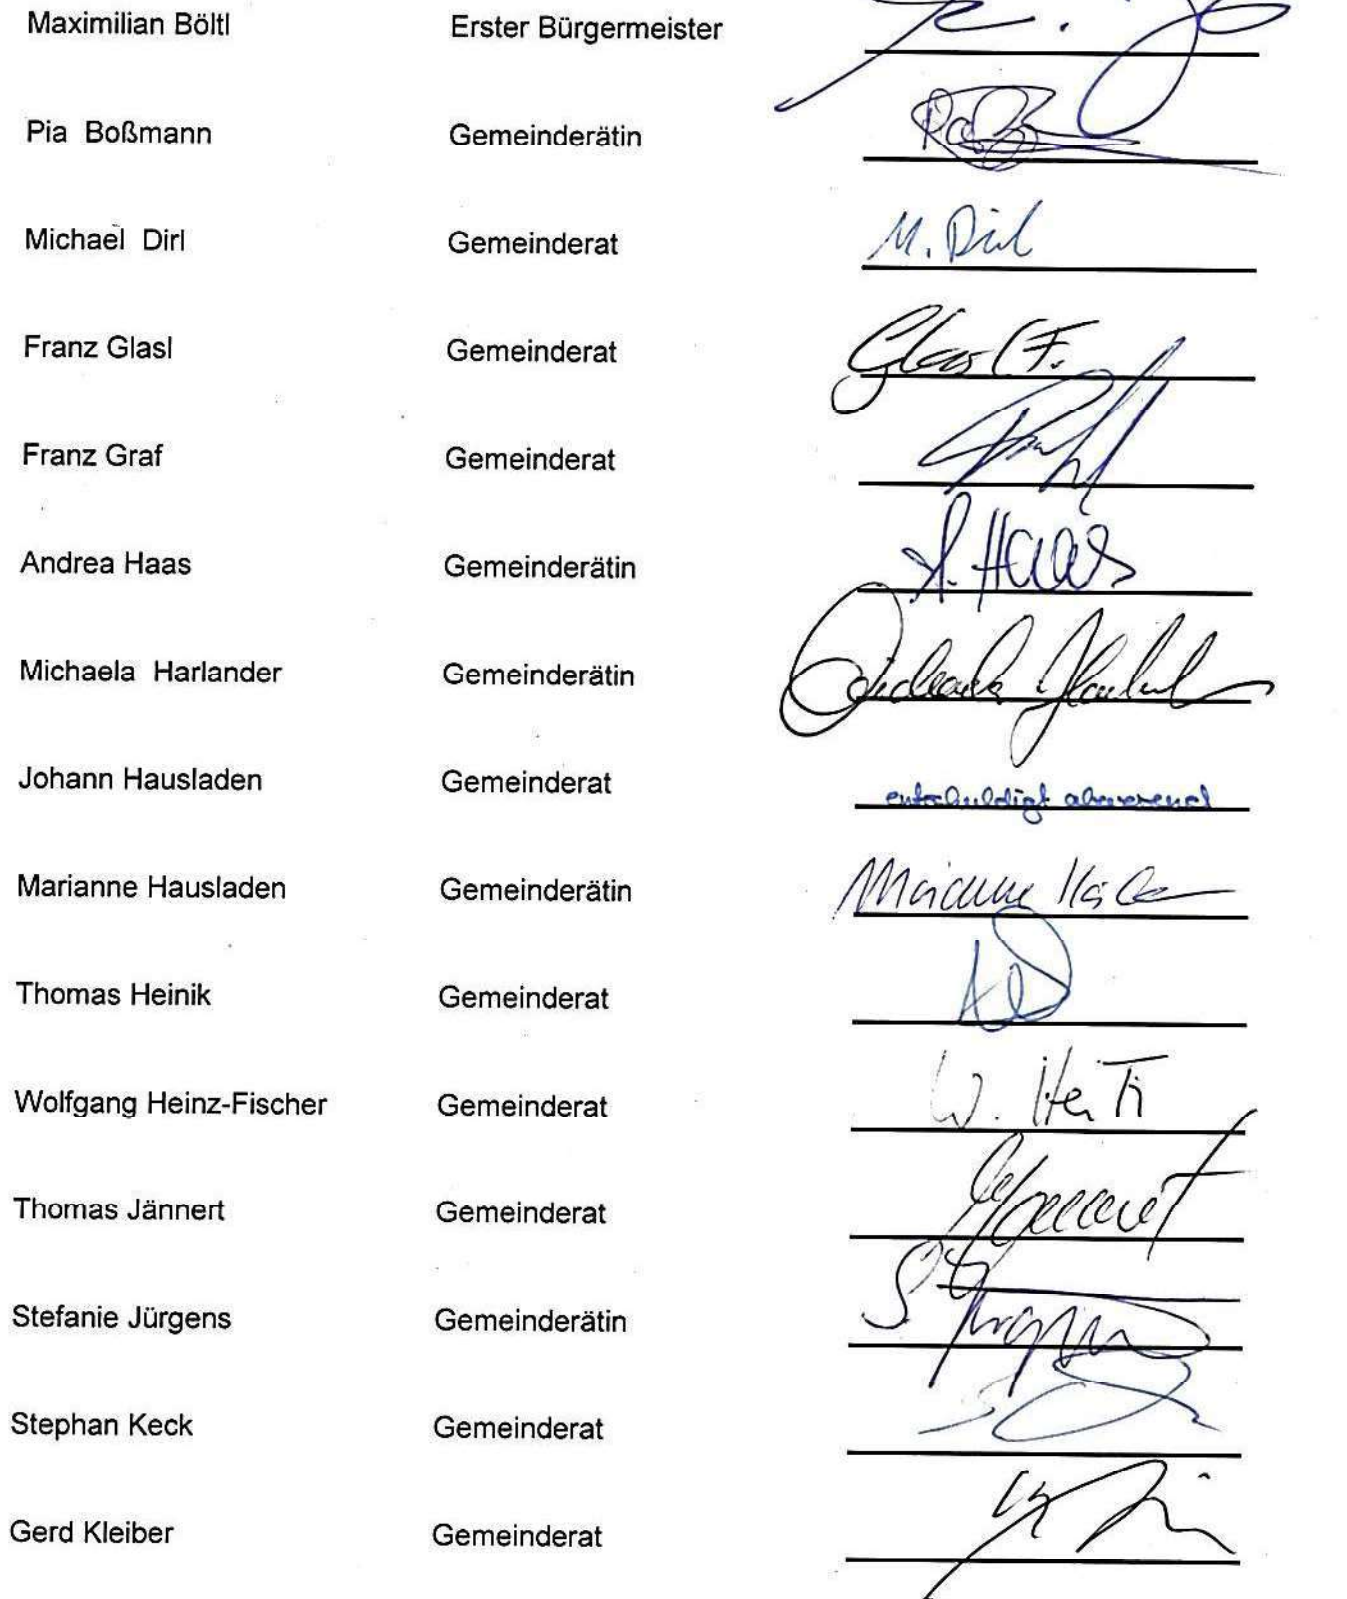 Maximilian Böltl Erster Bürgermeister
Pia Boßmann Gemeinderätin
Michael Dirl Gemeinderat M. Dirl
Franz Glasl Gemeinderat Glasl F.
Franz Graf Gemeinderat
Andrea Haas Gemeinderätin A. Haas
Michaela Harlander Gemeinderätin
Johann Hausladen Gemeinderat entschuldigt abwesend
Marianne Hausladen Gemeinderätin Marianne
Thomas Heinik Gemeinderat
Wolfgang Heinz-Fischer Gemeinderat W.
Thomas Jännert Gemeinderat
Stefanie Jürgens Gemeinderätin
Stephan Keck Gemeinderat
Gerd Kleiber Gemeinderat